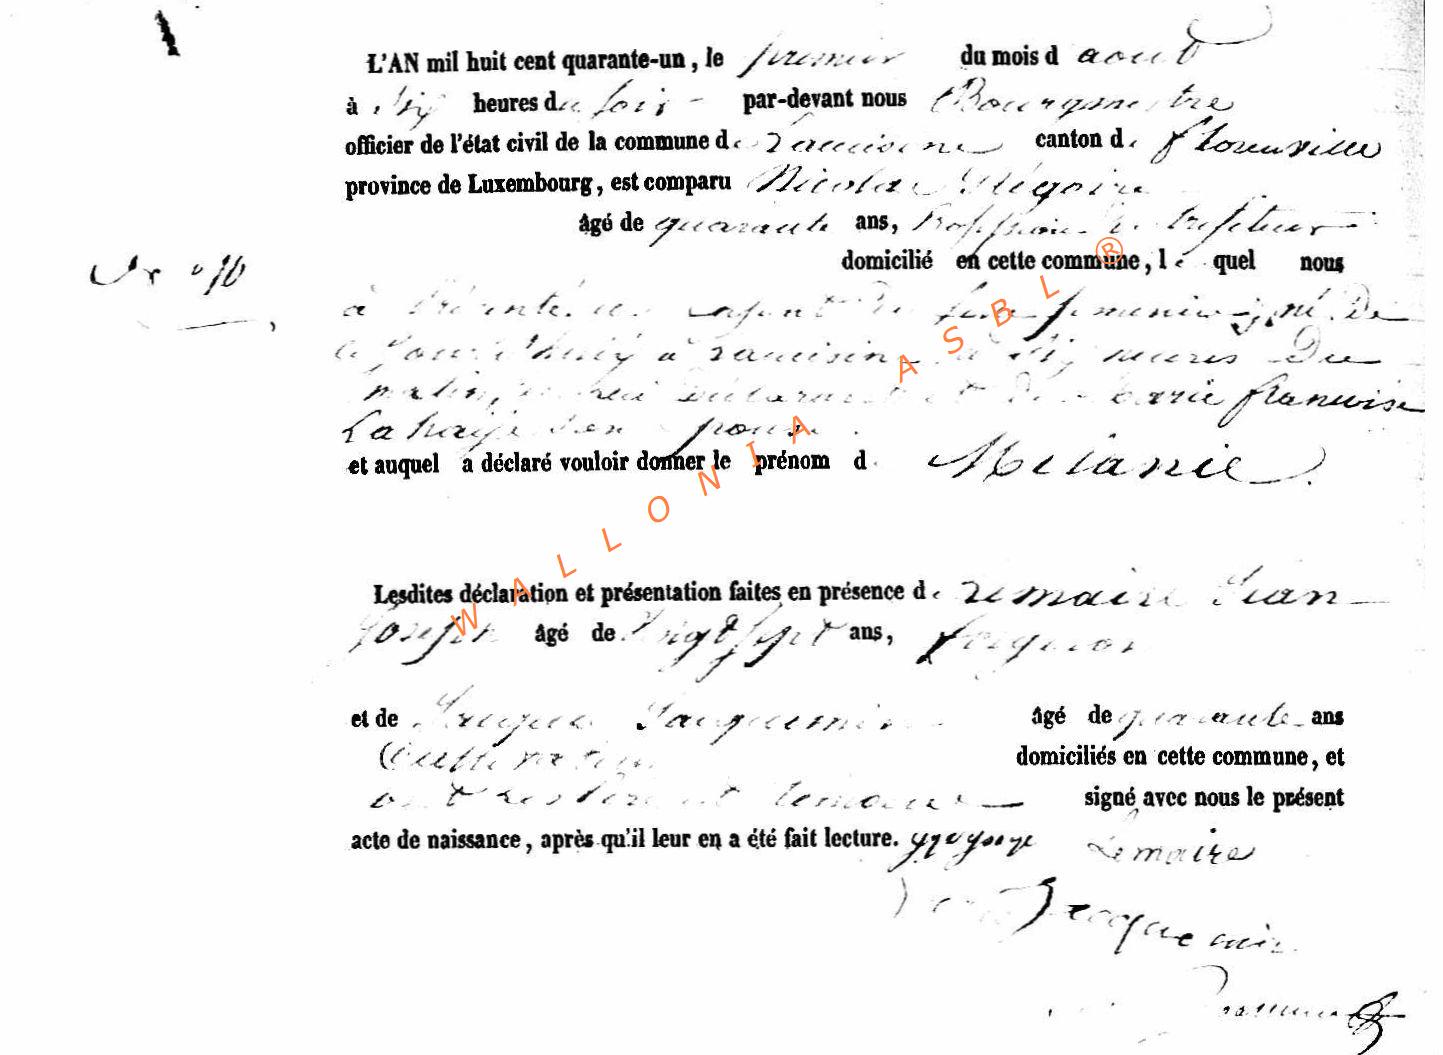 L'AN mil huit cent quarante-un, le premier du mois d aout
à Six heures du soir par-devant nous Bourgmestre
officier de l'état civil de la commune de canton de florenville
province de Luxembourg, est comparu Nicolas Grégoire
âgé de quarante ans,
domicilié en cette commune, le quel nous
N° 16
à présenté un enfant du sexe feminin, né De
ce Jourd'huis à à Six heures Du
matin, de lui Déclarant et De marie francoise
Lahaye son épouse
et auquel a déclaré vouloir donner le prénom d Mélanie.
WALLONIA ASBL ®
Lesdites déclaration et présentation faites en présence de Lemaire Jean
Joseph âgé de vingt sept ans, forgeron
et de Jacquemin âgé de quarante ans
Cultivateur domiciliés en cette commune, et
ont temoins signé avec nous le présent
acte de naissance, après qu'il leur en a été fait lecture. Lemaire
Jacquemin